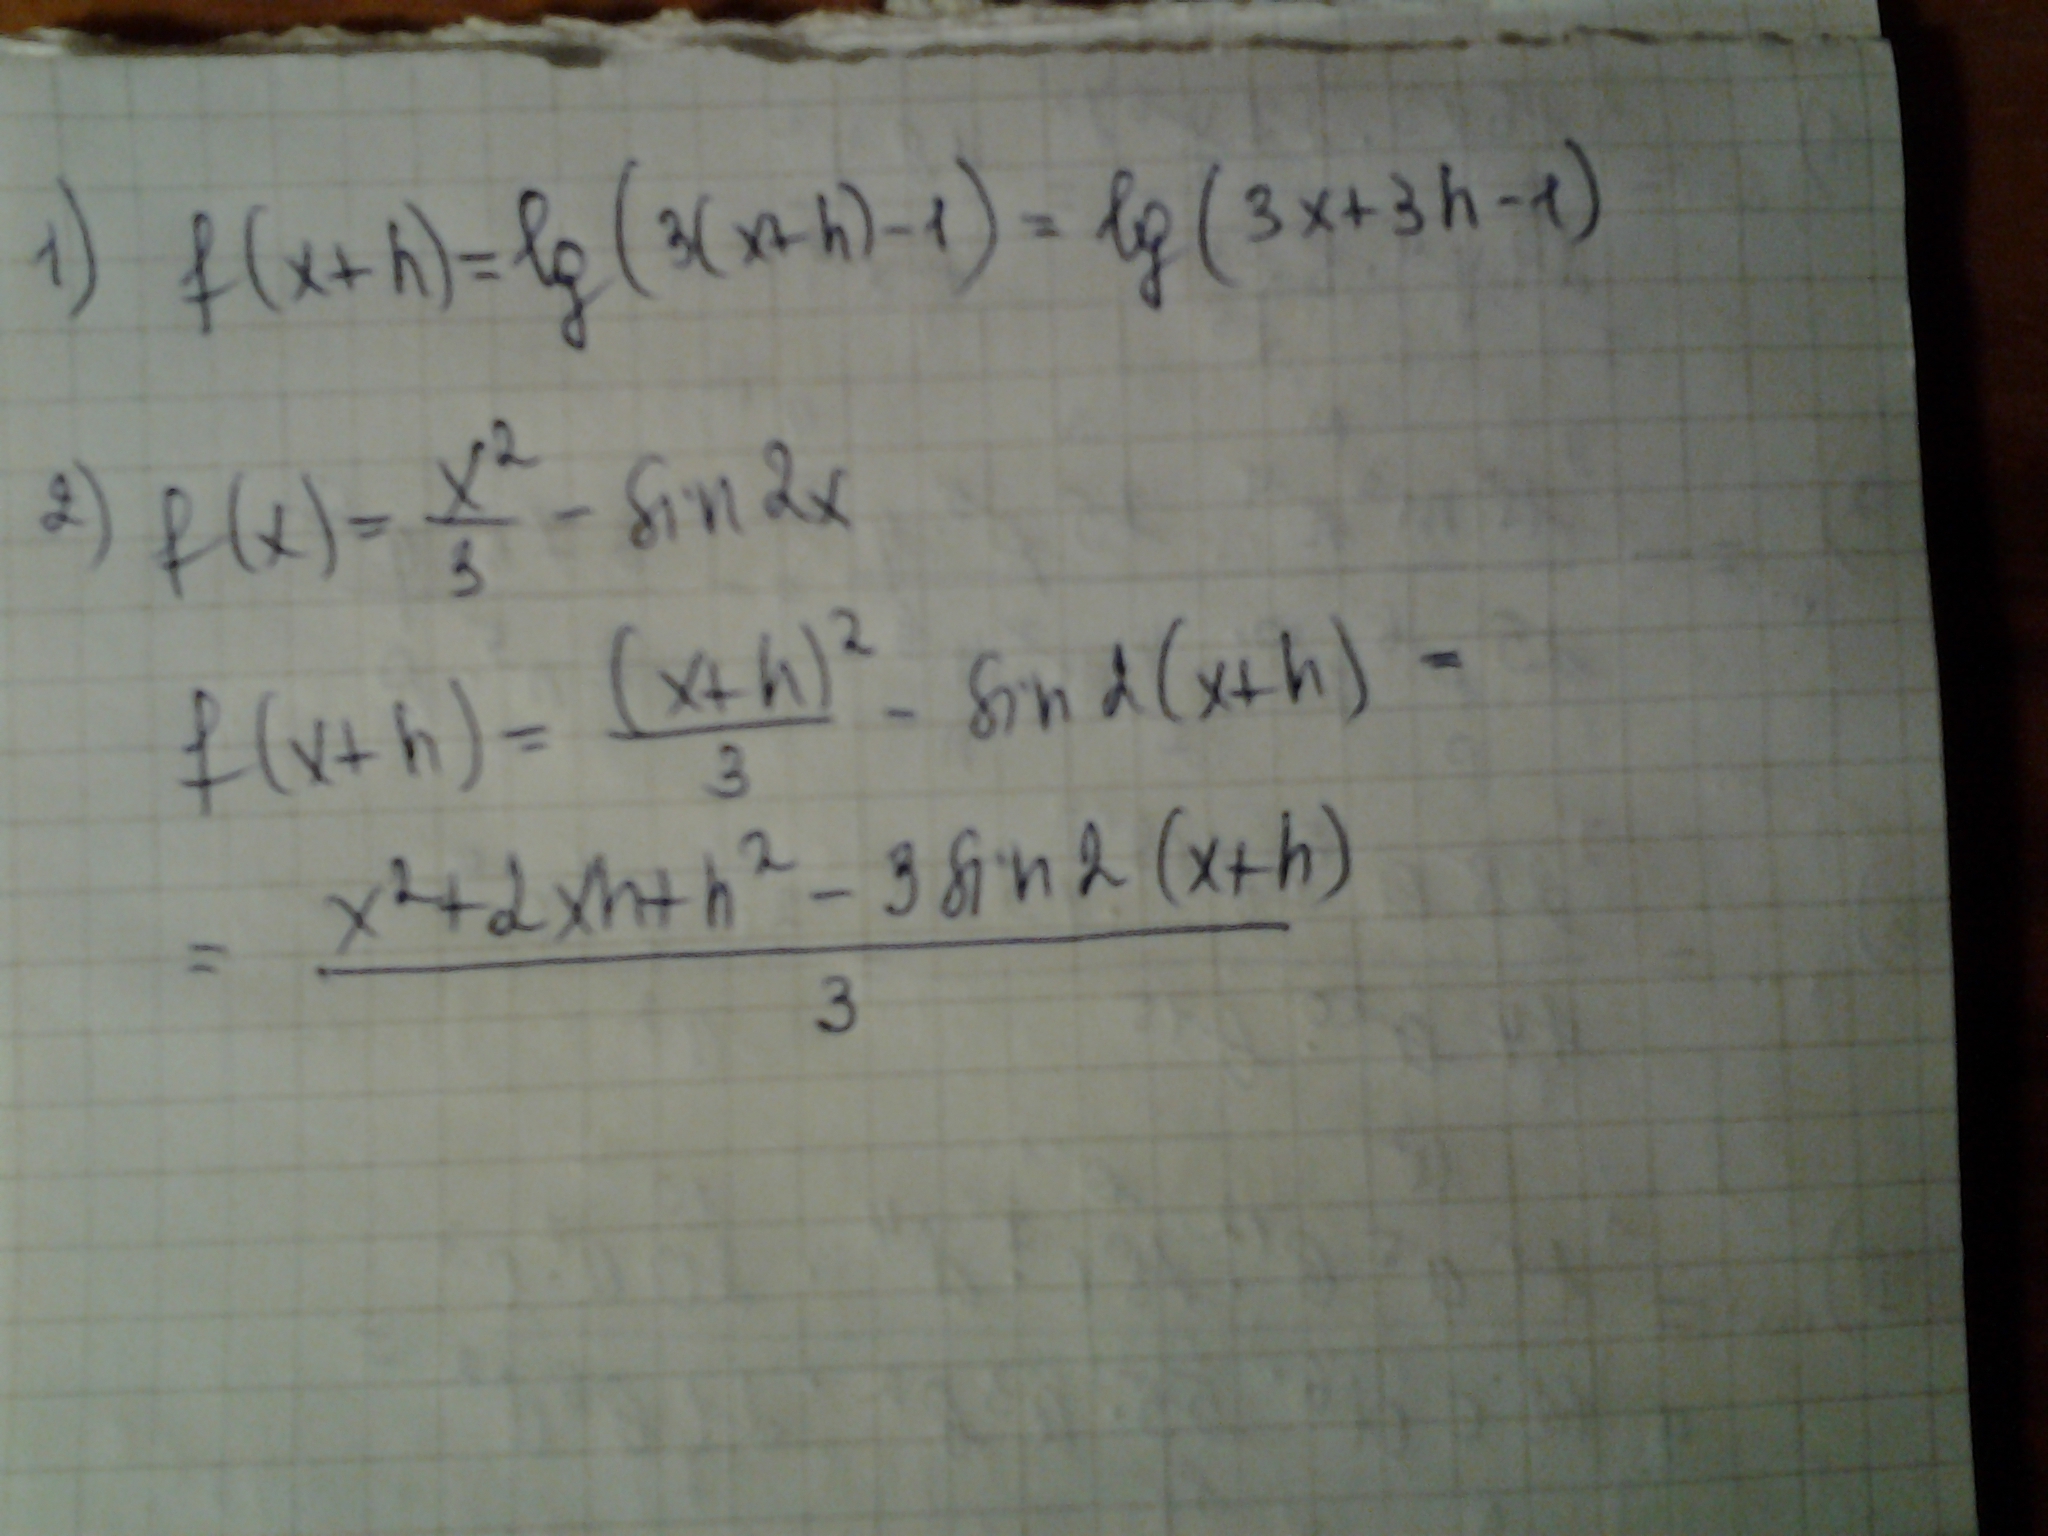 1) f(x+h)=lg(3(x+h)-1)=lg(3x+3h-1)
2) f(x)=x²/3 - sin2x
f(x+h)=(x+h)²/3 - sin2(x+h) =
= (x²+2xh+h² - 3sin2(x+h))/3